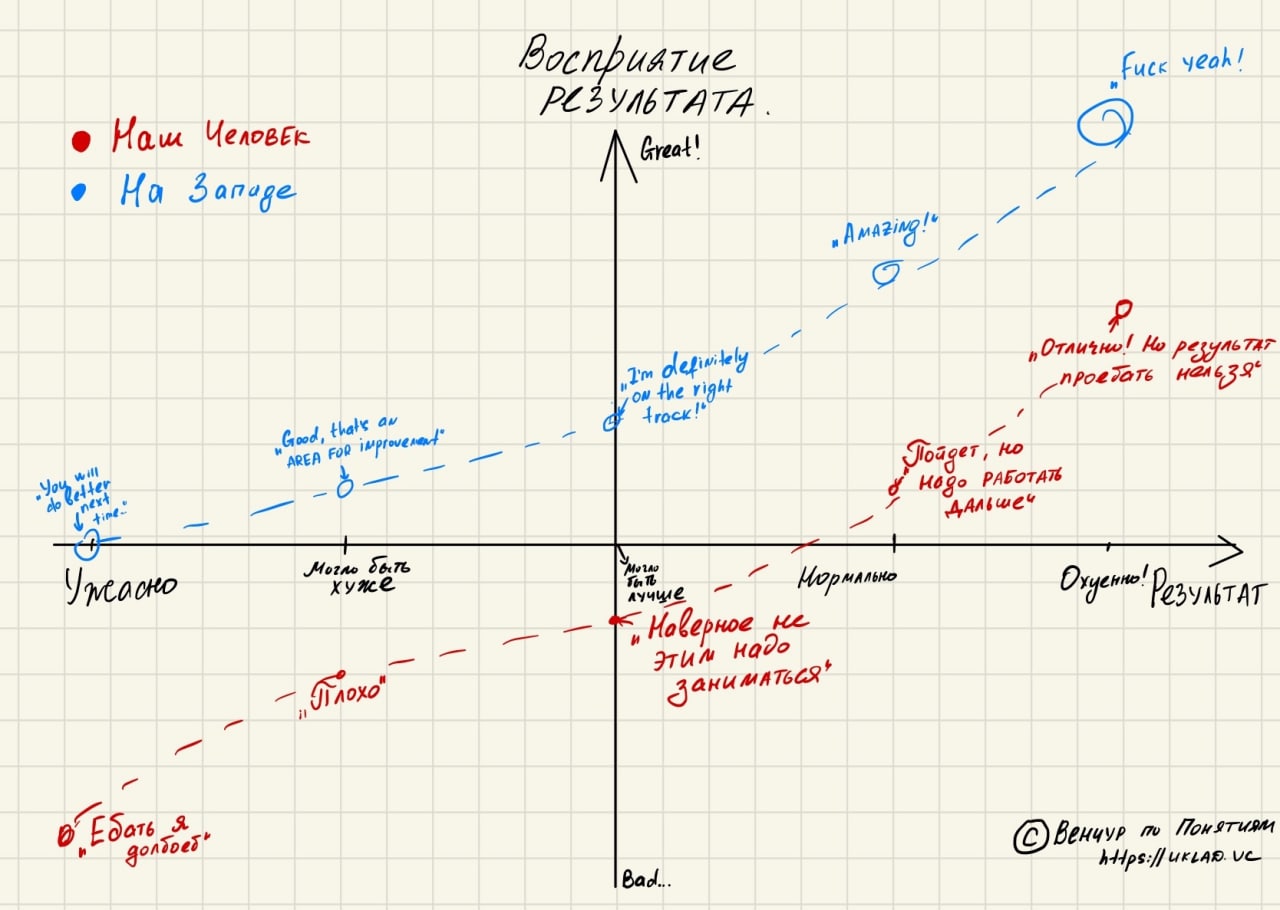 Восприятие
РЕЗУЛЬТАТА.
Great!
"Fuck yeah!
Наш Человек
На Западе
"Amazing!"
"I'm definitely
on the right
track!"
"Отлично! Но результат
проебать нельзя"
"Good, that's an
AREA FOR improvement"
"Пойдет, но
надо РАБОТАТЬ
ДАЛЬШЕ"
"You will
do better
next
time."
Ужасно
Могло быть
хуже
Могло
быть
лучше
Нормально
Охуенно!
РЕЗУЛЬТАТ
"Наверное не
этим надо
заниматься"
"Плохо"
"Ебать я
долбоеб"
© Венчур по Понятиям
https://UKLAD.VC
Bad...